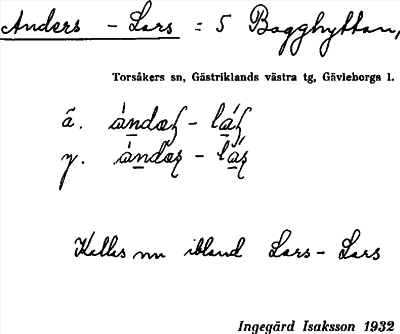 Anders - Lars = 5 Bagghyttan,
Torsåkers sn, Gästriklands västra tg, Gävleborgs l.
ä.
y.
Kallas nu ibland Lars - Lars
Ingegärd Isaksson 1932